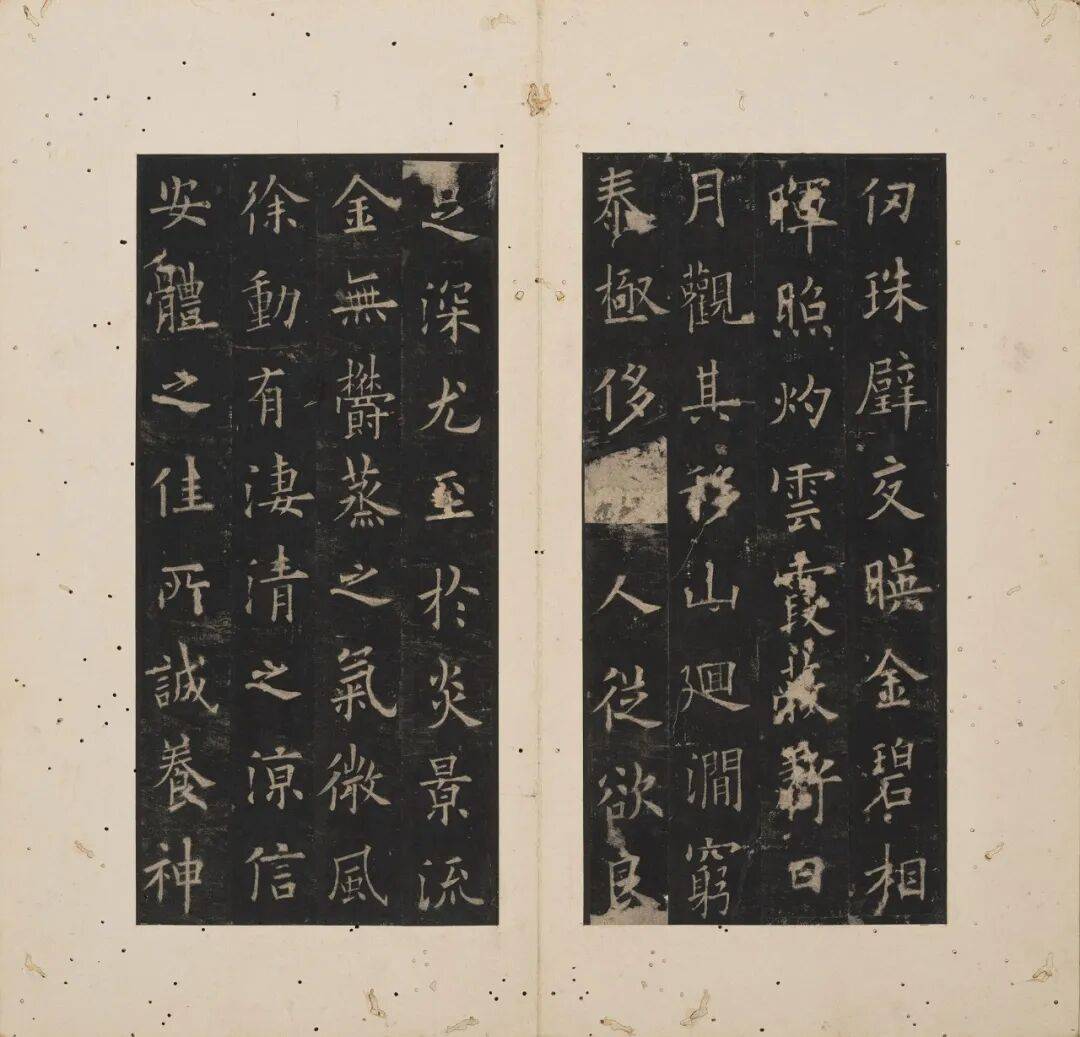 仞珠璧交暎金碧相
暉照灼雲霞蔽虧日
月觀其移山迴澗窮
泰極侈人從欲良
足深尤至於炎景流
金無欝蒸之氣微風
徐動有淒清之涼信
安體之佳所誠養神